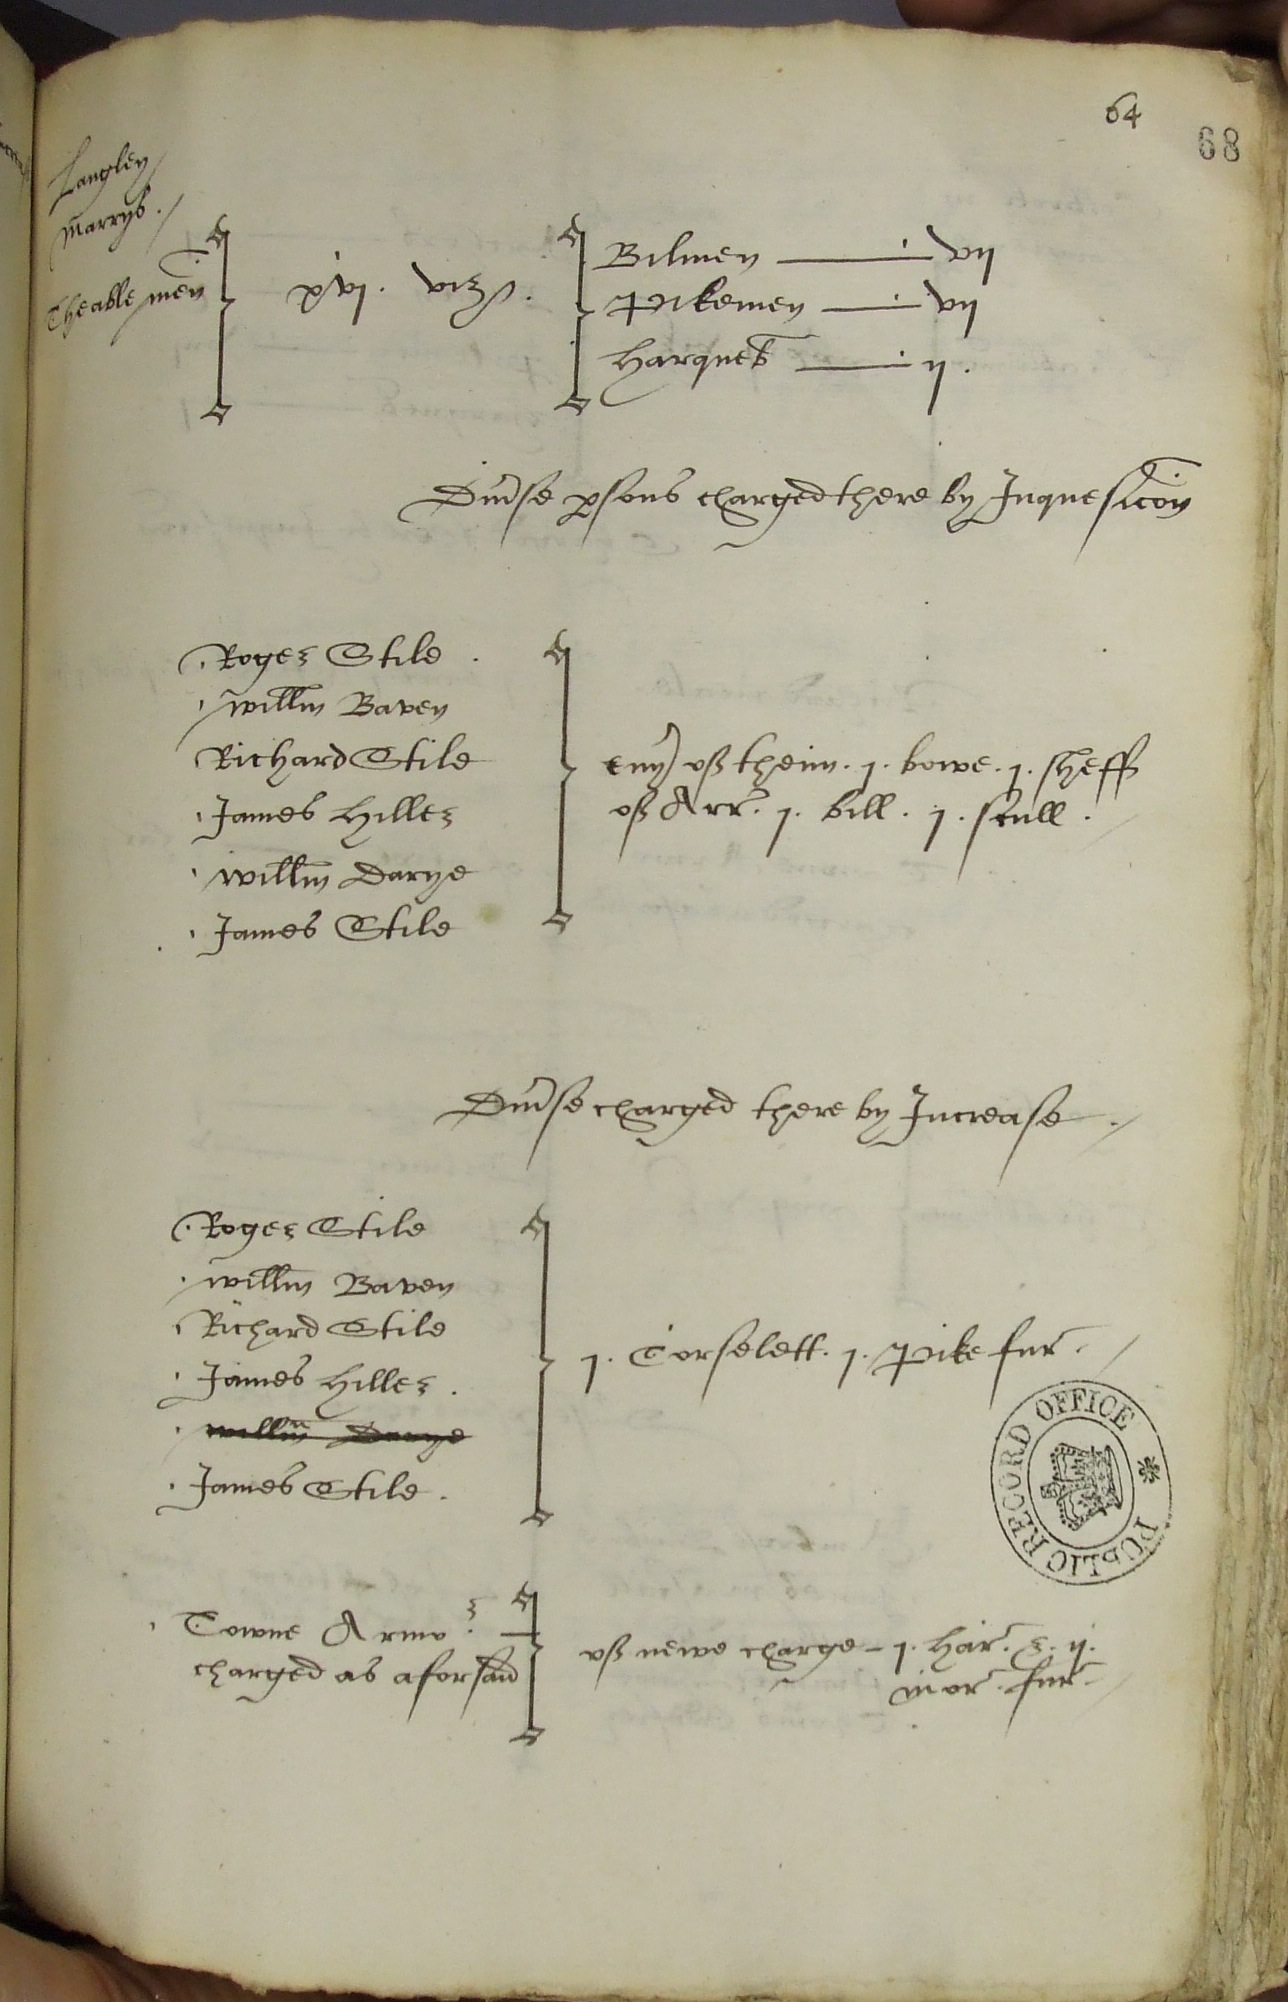 64
68
Langley
Marrys
The able men
xvi. viz.
Bilmen — vii
Pikemen — vii
Harquebs — ii.
Div'se psons charged there by Inquesicon
Roger Stile
Willm Baven
Richard Stile
James Hilles
Willm Darye
James Stile
eny of theim. j. bowe. j. sheff
of Arr. j. bill. j. scull.
Div'se charged there by Increase
Roger Stile
Willm Baven
Richard Stile
James Hilles.
Willm Darye
James Stile.
j. Corselett. j. Pike fur.
Towne Armor
charged as aforsaid
of newe charge – j. har. ij.
mor. fur.
PUBLIC RECORD OFFICE